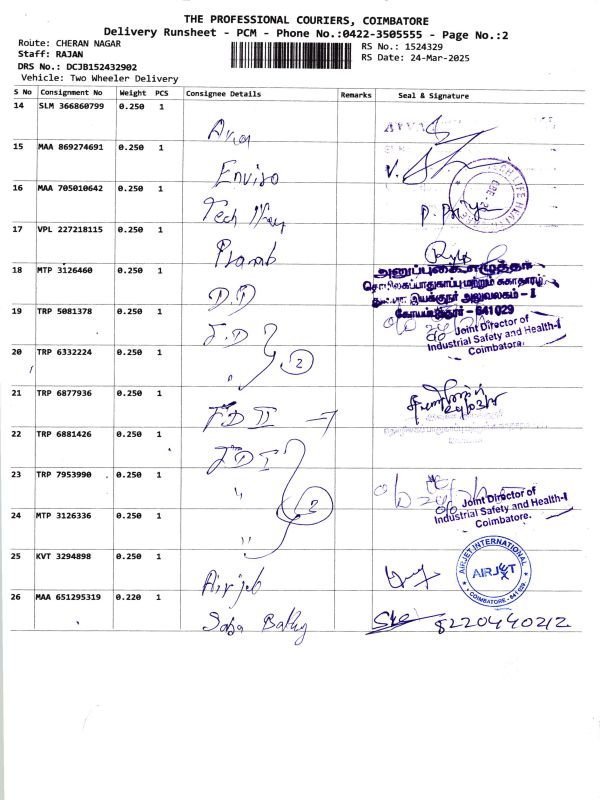 THE PROFESSIONAL COURIERS, COIMBATORE
Delivery Runsheet - PCM - Phone No.:0422-3505555 - Page No.:2
Route: CHERAN NAGAR
RS No.: 1524329
Staff: RAJAN
RS Date: 24-Mar-2025
DRS No.: DCJB152432902
Vehicle: Two Wheeler Delivery
S No Consignment No Weight PCS Consignee Details Remarks Seal & Signature
14 SLM 366860799 0.250 1
15 MAA 869274691 0.250 1
Enviro
16 MAA 705010642 0.250 1
Tech
17 VPL 227218115 0.250 1
18 MTP 3126460 0.250 1
D.D
அனுப்புகை எழுத்தர்
தொழிலகப் பாதுகாப்பு மற்றும் சுகாதாரம்
இயக்குநர் அலுவலகம் - I
கோயம்புத்தூர் - 641029
19 TRP 5081378 0.250 1
J.D
Joint Director of
Industrial Safety and Health-I
Coimbatore.
20 TRP 6332224 0.250 1
2
21 TRP 6877936 0.250 1
JD II
22 TRP 6881426 0.250 1
JD I
23 TRP 7953990 0.250 1
"
2
Joint Director of
Industrial Safety and Health-I
Coimbatore.
24 MTP 3126336 0.250 1
"
25 KVT 3294898 0.250 1
Airjet
AIRJET INTERNATIONAL
AIRJET
COIMBATORE - 641 029.
26 MAA 651295319 0.220 1
8220440212